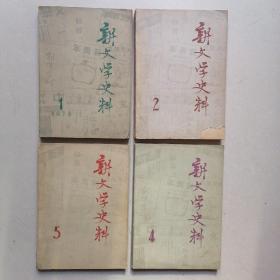 新文学史料
1
新文学史料
2
新文学史料
5
新文学史料
4